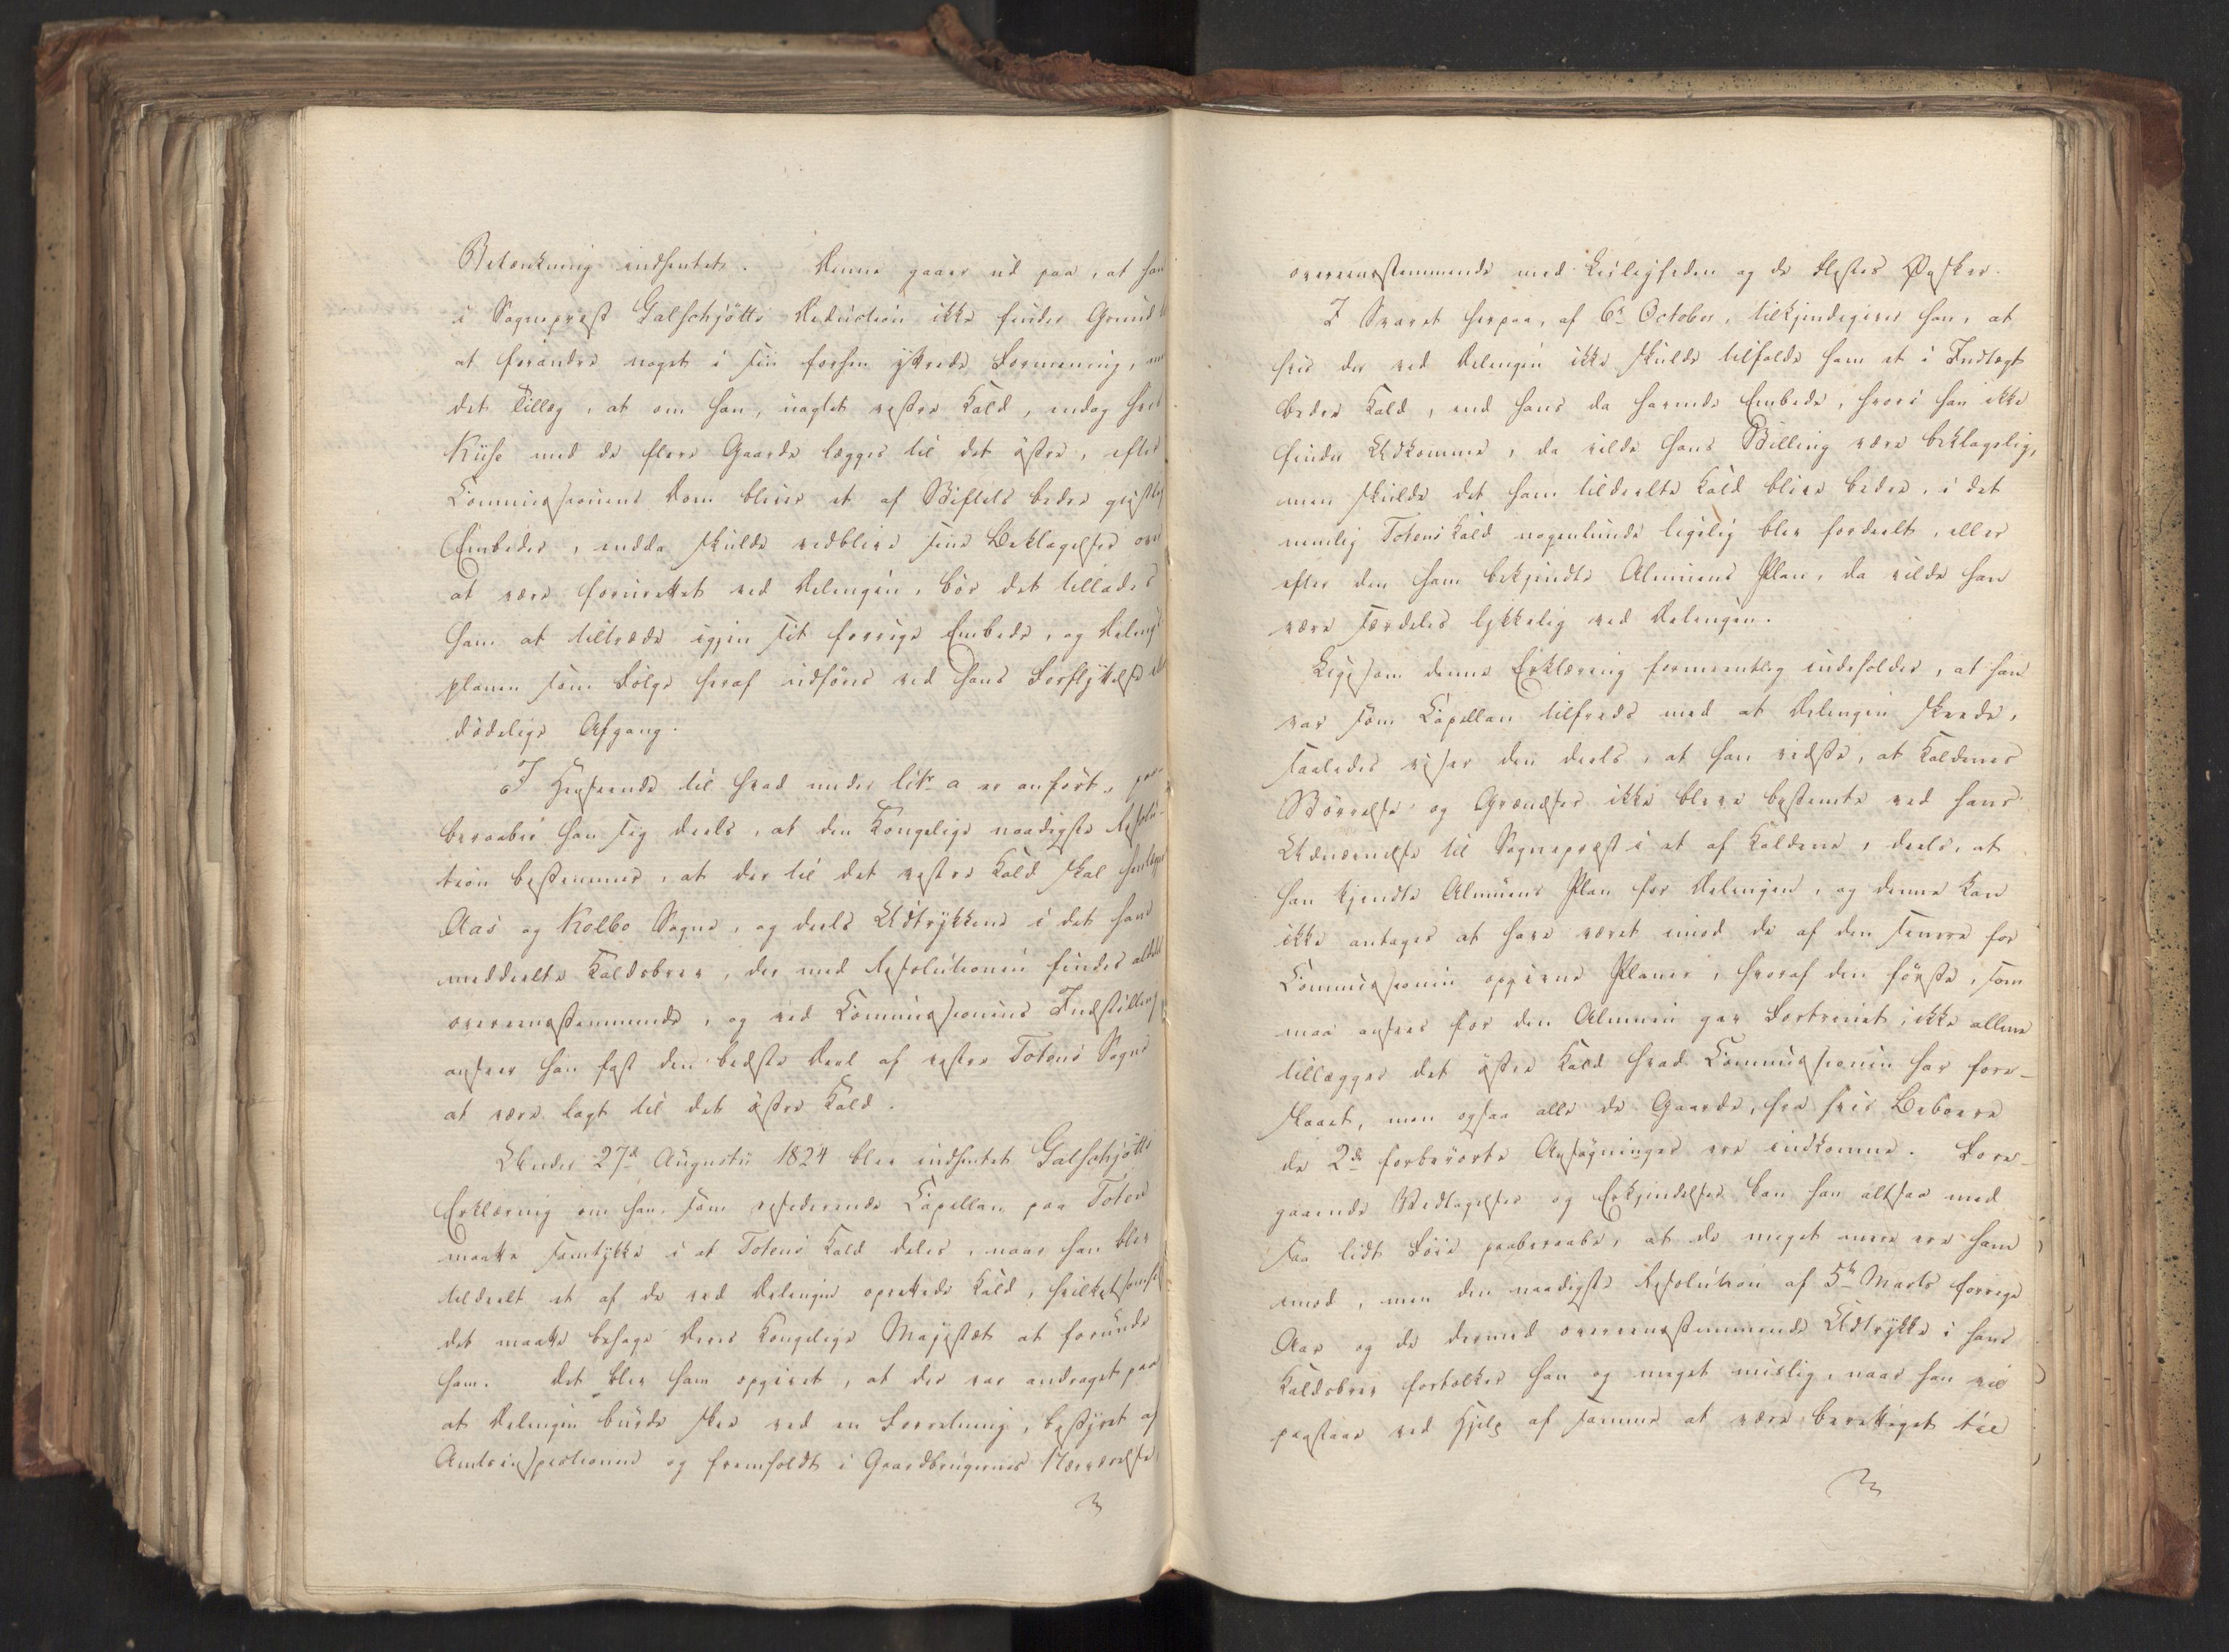 Betænkning indhentet. Denne gaaer ud paa, at han
i Sognepræst Galschjøtts Deduction ikke finder Grund
at forandre noget i sin forhen yttrede Formening,
det Tillæg, at om han, uagtet vestre Kald, endog hvis
Kiise med de flere Gaarde lægges til det östre, efter
Commissionens Dom bliver et af Stiftets bedre geistlige
Embeder, endda skulde vedblive sine Beklagelser over
at være forurettet ved Delingen, bör det tillades
ham at tiltræde igjen sit forrige Embede, og Delings
planen som Fölge heraf udföres ved hans Forflyttelse eller
dödelige Afgang.
I Henseende til hvad under litr a er anfört, paa-
beraaber han sig deels, at den Kongelige naadigste Resolu-
tion bestemmer, at der til det vestre Kald skal henlægges
Aas og Kolbo Sogne, og deels Udtrykkene i det ham
meddeelte Kaldsbrev, der med Resolutionen findes aldeles
overeensstemmende, og ved Commissionens Indstilling
anseer han fast den bedste Deel af vestre Totens Sogne
at være lagt til det östre Kald.
Under 27d Augustii 1824 blev indhentet Galschjøtts
Erklæring om han, som residerende Capellan paa Toten
maatte samtykke i at Totens Kald deles, naar han blev
tildeelt et af de ved Delingen oprettede Kald, hvilketsomhelst
det maatte behage Deres Kongelige Majestæt at forunde
ham. Det blev ham opgivet, at der var andraget paa
at Delingen burde skee ved en Forretning, bestyret af
Amtsinspectionen og fremholdt i Gaardbrugernes Nærværelse
overeensstemmende med Leiligheden og de flestes Ønsker.
I Svaret herpaa, af 6te October, tilkjendegiver han, at
hvis der ved Delingen ikke skulde tilfalde ham et i Indtægt
bedre Kald, end hans da havende Embede, hvori han ikke
finder Udkomme, da vilde hans Stilling være beklagelig,
men skulde det ham tildeelte Kald blive bedre, i det
nemlig Totens Kald nogenlunde ligelig blev fordeelt, eller
efter den ham bekjendte Almuens Plan, da vilde han
være særdeles lykkelig ved Delingen.
Ligesom denne Erklæring formeentlig indeholder, at han
var som Capellan tilfreds med at Delingen skeede,
saaledes viser den deels, at han vidste, at Kaldenes
Störrelse og Grændser ikke bleve bestemte ved hans
Udnævnelse til Sognepræst i et af Kaldene, deels, at
han kjendte Almuens Plan for Delingen, og denne kan
ikke antages at have været imod de af den senere for
Commissionen opgivne Planer, hvoraf den förste, som
maa ansees for den Almuen gav Fortrinet, ikke allene
tillægger det östre Kald hvad Commissionen har fore-
slaaet, men ogsaa alle de Gaarde, fra hvis Beboere
de 2de forberörte Ansögninger ere indkomne. Fore-
gaaende Vedtagelser og Erkjendelser kan han altsaa med
saa lidt Föie paaberaabe, at de meget mere ere ham
imod, men den naadigste Resolution af 5te Marts forrige
Aar og de dermed overeensstemmende Udtrykke i hans
Kaldsbrev fortolker han og meget mislig, naar han vil
paastaae ved Hjelp af samme at være berettiget til